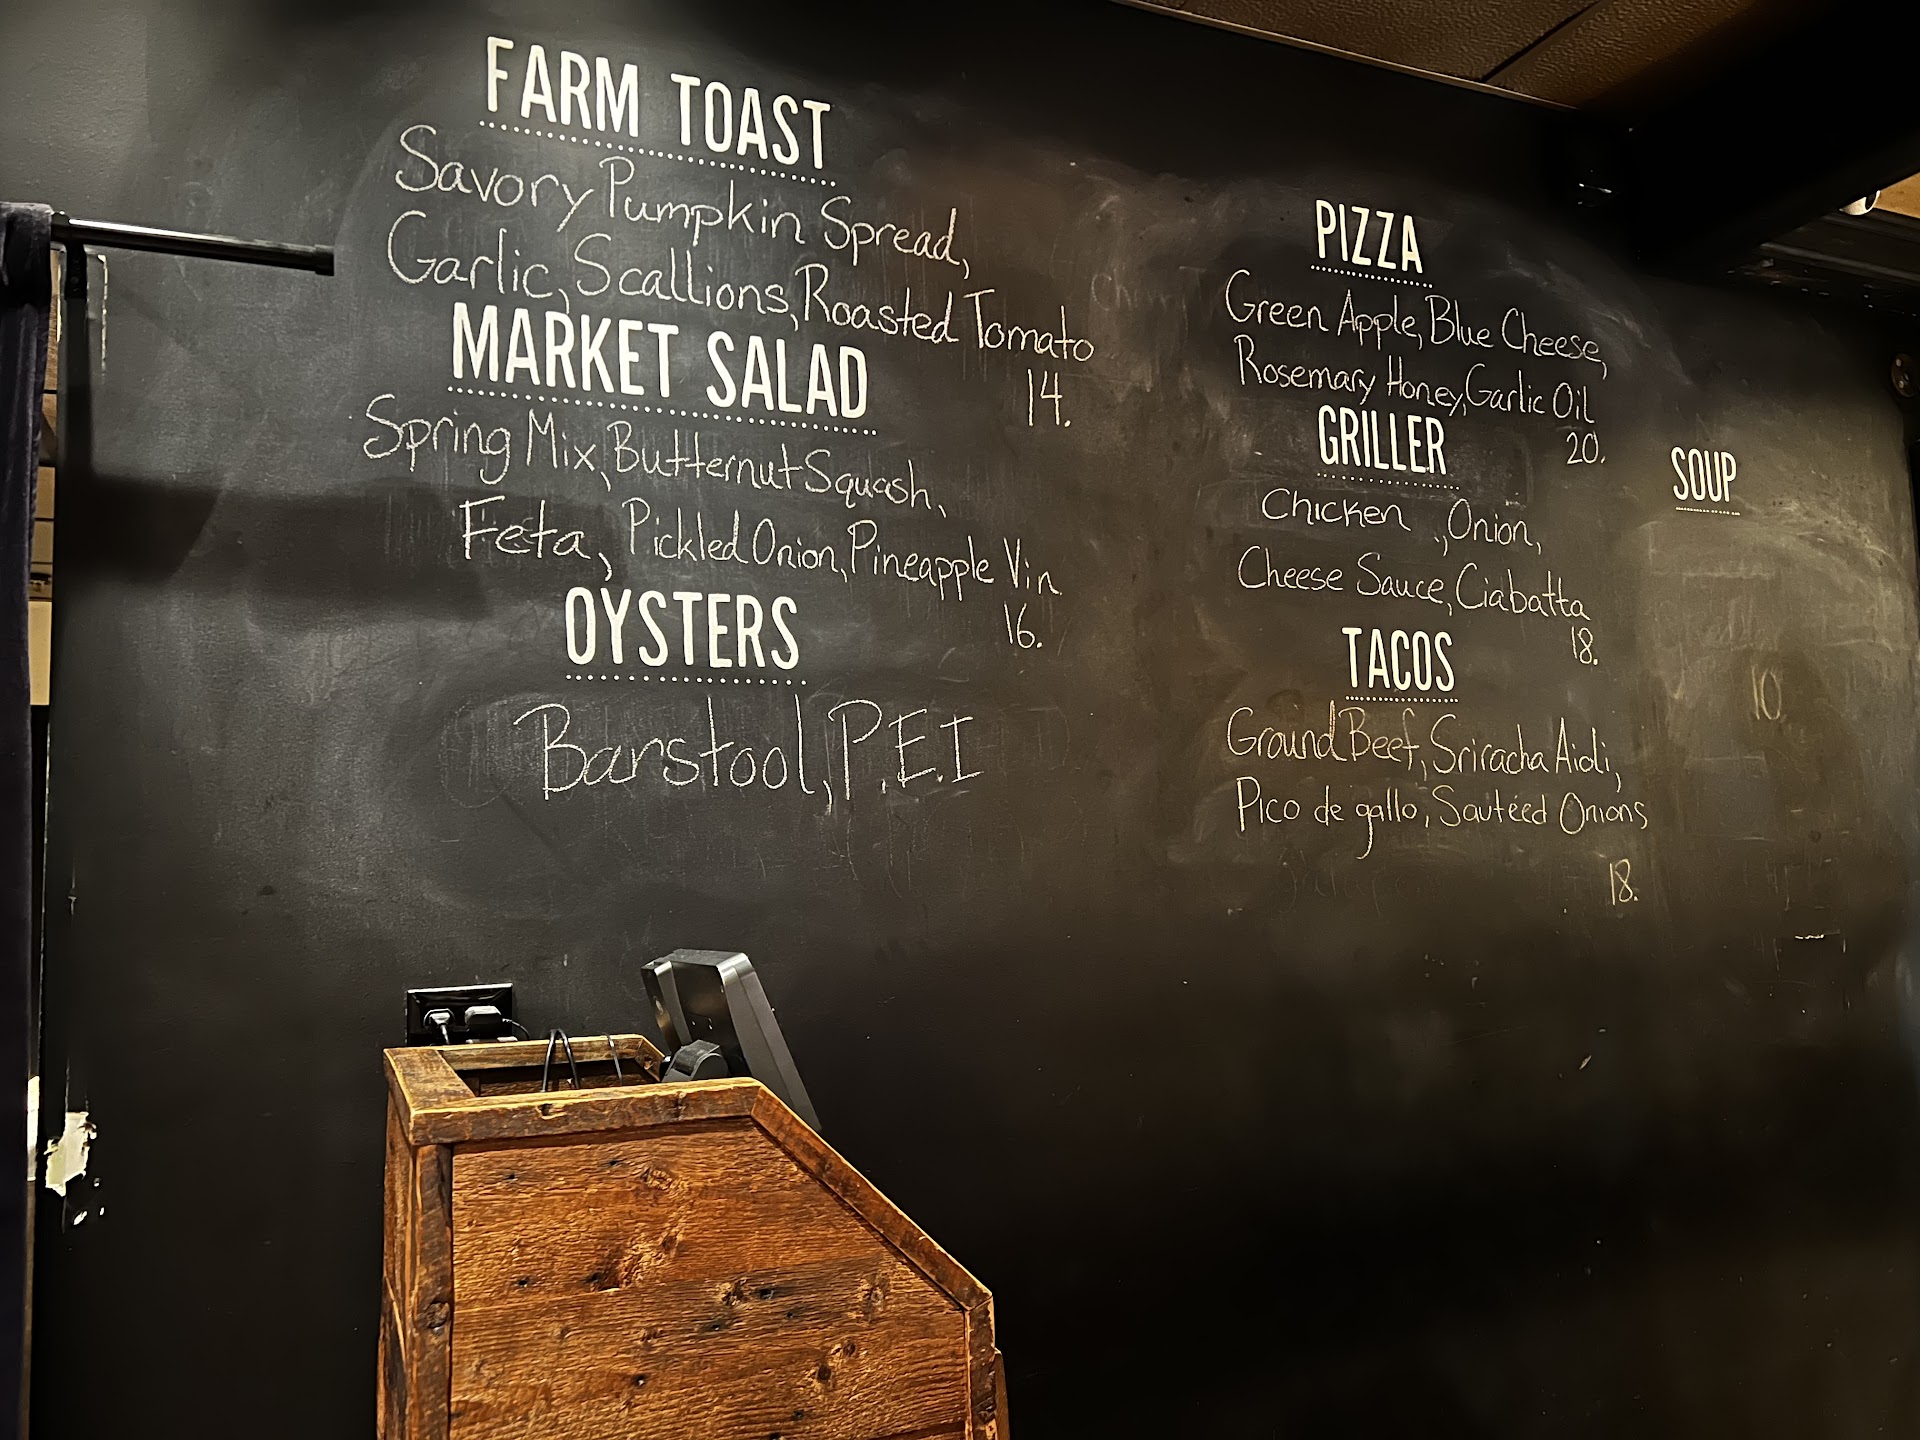 FARM TOAST
Savory Pumpkin Spread,
Garlic, Scallions, Roasted Tomato
14.
MARKET SALAD
Spring Mix, Butternut Squash,
Feta, Pickled Onion, Pineapple Vin
16.
OYSTERS
Barstool, P.E.I
PIZZA
Green Apple, Blue Cheese,
Rosemary Honey, Garlic Oil
20.
GRILLER
Chicken , Onion,
Cheese Sauce, Ciabatta
18.
TACOS
Ground Beef, Sriracha Aioli,
Pico de gallo, Sautéed Onions
18.
SOUP
10